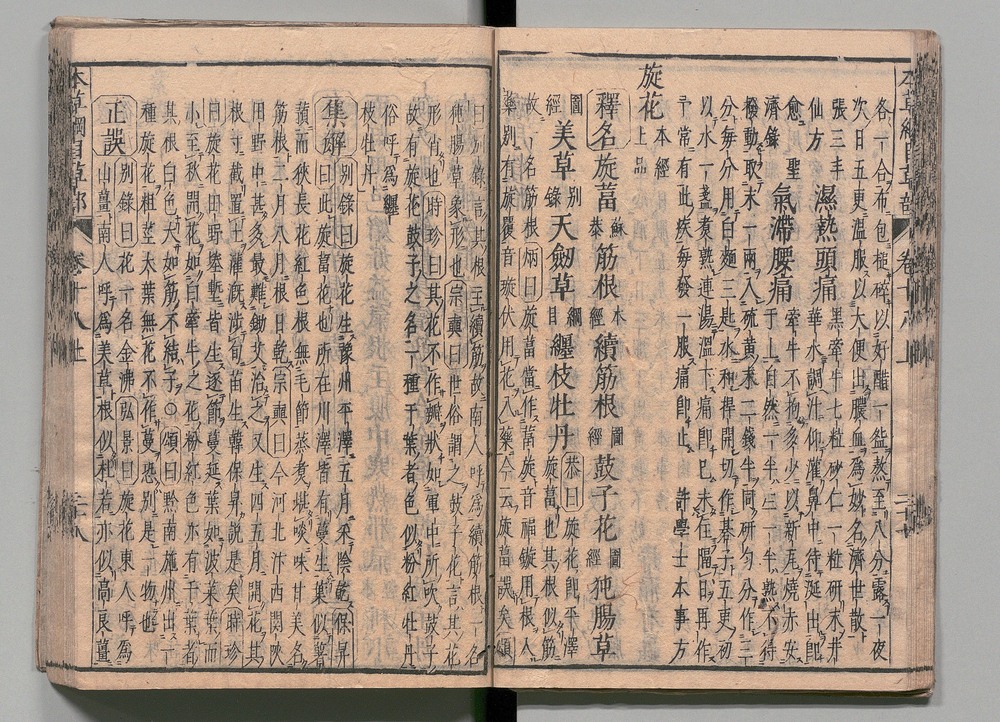 各一合布包搥碎以好醋一盌熬至八分露一夜
次日五更溫服以大便出膿血為妙名濟世散
張三丰仙方 濕熱頭痛 黑牽牛七粒砂仁一粒研末井
華水調汁仰灌鼻中待涎出即
愈聖濟錄 氣滯腰痛 牽牛不拘多少以新瓦燒赤安
於上自然一半生一半熟不得
撥動取末一兩入硫黃末二錢半同研勻分作三
分每分用白麵三匙水和捍開切作棊子五更初
以水一盞煮熟連湯溫下痛即已未住隔日再作
予常有此疾每發一服痛即止 許學士本事方
旋花 本經上品
釋名 旋葍 蘇恭 筋根 本經 續筋根 圖經 鼓子花 圖經 㹠腸草
圖經 美草 別錄 天劒草 綱目 纏枝牡丹 恭曰旋花即平澤
旋葍也其根似筋
故一名筋根 炳曰旋葍當作葍旋音福鏇用根入
藥別有旋覆音璇伏用花入藥今云旋葍誤矣 頌
曰別錄言其根主續筋故南人呼為續筋根一名
㹠腸草象形也 宗奭曰世俗謂之鼓子花言其花
形肖也 時珍曰其花不作瓣狀如軍中所吹鼓子
故有旋花鼓子之名一種千葉者色似粉紅牡丹
俗呼為纏
枝牡丹
集解 別錄曰旋花生豫州平澤五月采陰乾 保昇
曰此旋葍花也所在川澤皆有蔓生葉似薯
蕷而狹長花紅色根無毛節蒸煮堪啖味甘美名
筋根二月八月采根日乾 宗奭曰今河北汴西關陝
田野中甚多最難鋤艾治之又生四五月開花其
根寸截置土灌漑涉旬苗生韓保昇說是矣 時珍
曰旋花田野塍塹皆生逐節蔓延葉如波菜葉而
小至秋開花如白牽牛花粉紅色亦有千葉者
其根白色大如筋不結子○ 頌曰黔南施州出一
種旋花粗莖大葉無花不作蔓恐別是一物也
正誤 別錄曰花一名金沸 弘景曰旋花東人呼為
山薑南人呼為美草根似杜若亦似高良薑
本草綱目草部 卷十八上 二十八